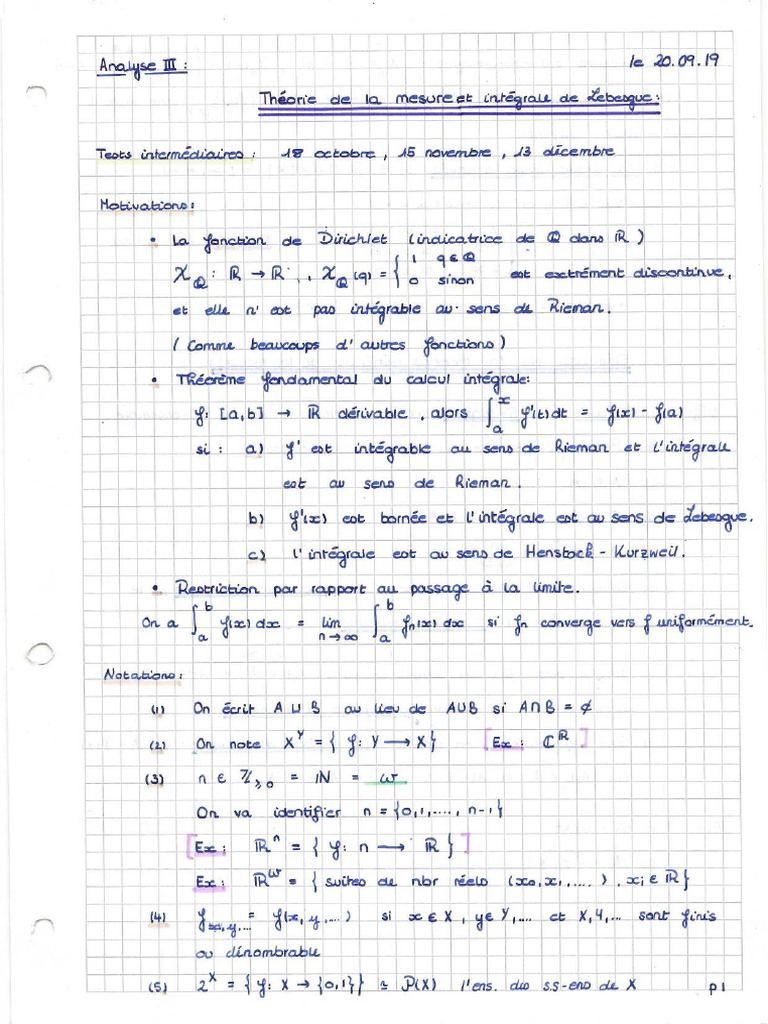 Analyse III :
le 20.09.19
Théorie de la mesure et intégrale de Lebesgue :
Tests intermédiaires : 18 octobre , 15 novembre , 13 décembre
Motivations :
• La fonction de Dirichlet (indicatrice de ℚ dans ℝ )
χ_ℚ : ℝ → ℝ , χ_ℚ (q) = { 1 q ∈ ℚ
0 sinon est extrément discontinue,
et elle n' est pas intégrable au sens de Rieman.
( Comme beaucoups d' autres fonctions )
• Théorème fondamental du calcul intégrale:
f: [a,b] → ℝ dérivable , alors ∫_a^x f'(t)dt = f(x) - f(a)
si : a) f' est intégrable au sens de Rieman et l'intégrale
est au sens de Rieman.
b) f'(x) est bornée et l'intégrale est au sens de Lebesgue.
c) l'intégrale est au sens de Henstock - Kurzweil.
• Restriction par rapport au passage à la limite.
On a ∫_a^b f(x) dx = lim_{n→∞} ∫_a^b fn(x) dx si fn converge vers f uniformément.
Notations :
(1) On écrit A ⊔ B au lieu de A∪B si A∩B = ∅
(2) On note X^Y = { f: Y ⟶ X} [Ex : ℂ^ℝ ]
(3) n ∈ ℤ_{≥0} = ℕ = ω
On va identifier n = {0,1,...., n-1}
[Ex : ℝ^n = { f: n ⟶ ℝ } ]
Ex : ℝ^ω = { suites de nbr réels (x₀,x₁,.....) , xᵢ ∈ ℝ}
(4) f_{x,y,...} = f(x, y,...) si x ∈ X , y∈ Y,.... et X,Y,... sont finis
ou dénombrable
(5) 2^X = { f: X → {0,1}} ≃ P(X) l'ens. des s.s-ens de X
p 1